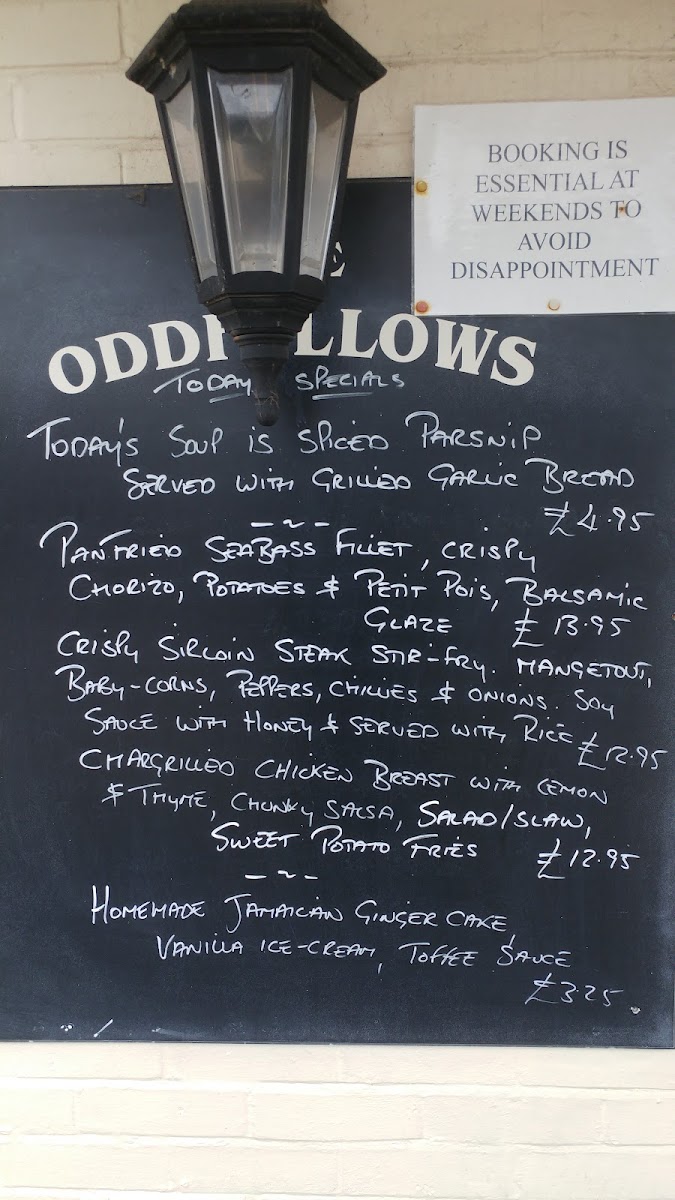 BOOKING IS
ESSENTIAL AT
WEEKENDS TO
AVOID
DISAPPOINTMENT
ODDFELLOWS
TODAY SPECIALS
TODAY'S SOUP IS SPICED PARSNIP
SERVED WITH GRILLED GARLIC BREAD
£4.95
PANFRIED SEABASS FILLET, CRISPY
CHORIZO, POTATOES & PETIT POIS, BALSAMIC
GLAZE £13.95
CRISPY SIRLOIN STEAK STIR-FRY. MANGETOUT,
BABY-CORNS, PEPPERS, CHILLIES & ONIONS. SOY
SAUCE WITH HONEY & SERVED WITH RICE £12.95
CHARGRILLED CHICKEN BREAST WITH LEMON
& THYME, CHUNKY SALSA, SALAD/SLAW,
SWEET POTATO FRIES £12.95
HOMEMADE JAMAICAN GINGER CAKE,
VANILLA ICE-CREAM, TOFFEE SAUCE
£3.25